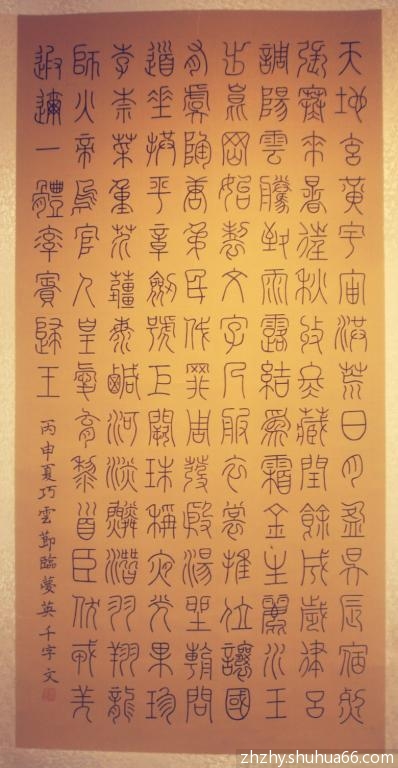 天地玄黃宇宙洪荒日月盈昃辰宿列
張寒來暑往秋收冬藏閏餘成歲律呂
調陽雲騰致雨露結爲霜金生麗水玉
出崑岡始製文字乃服衣裳推位讓國
有虞陶唐弔民伐罪周發殷湯坐朝問
道垂拱平章劍號巨闕珠稱夜光果珍
李柰菜重芥薑海鹹河淡鱗潛羽翔龍
師火帝鳥官人皇愛育黎首臣伏戎羌
遐邇一體率賓歸王
丙申夏巧雲臨夢英千字文
zhzhy.shuhua66.com